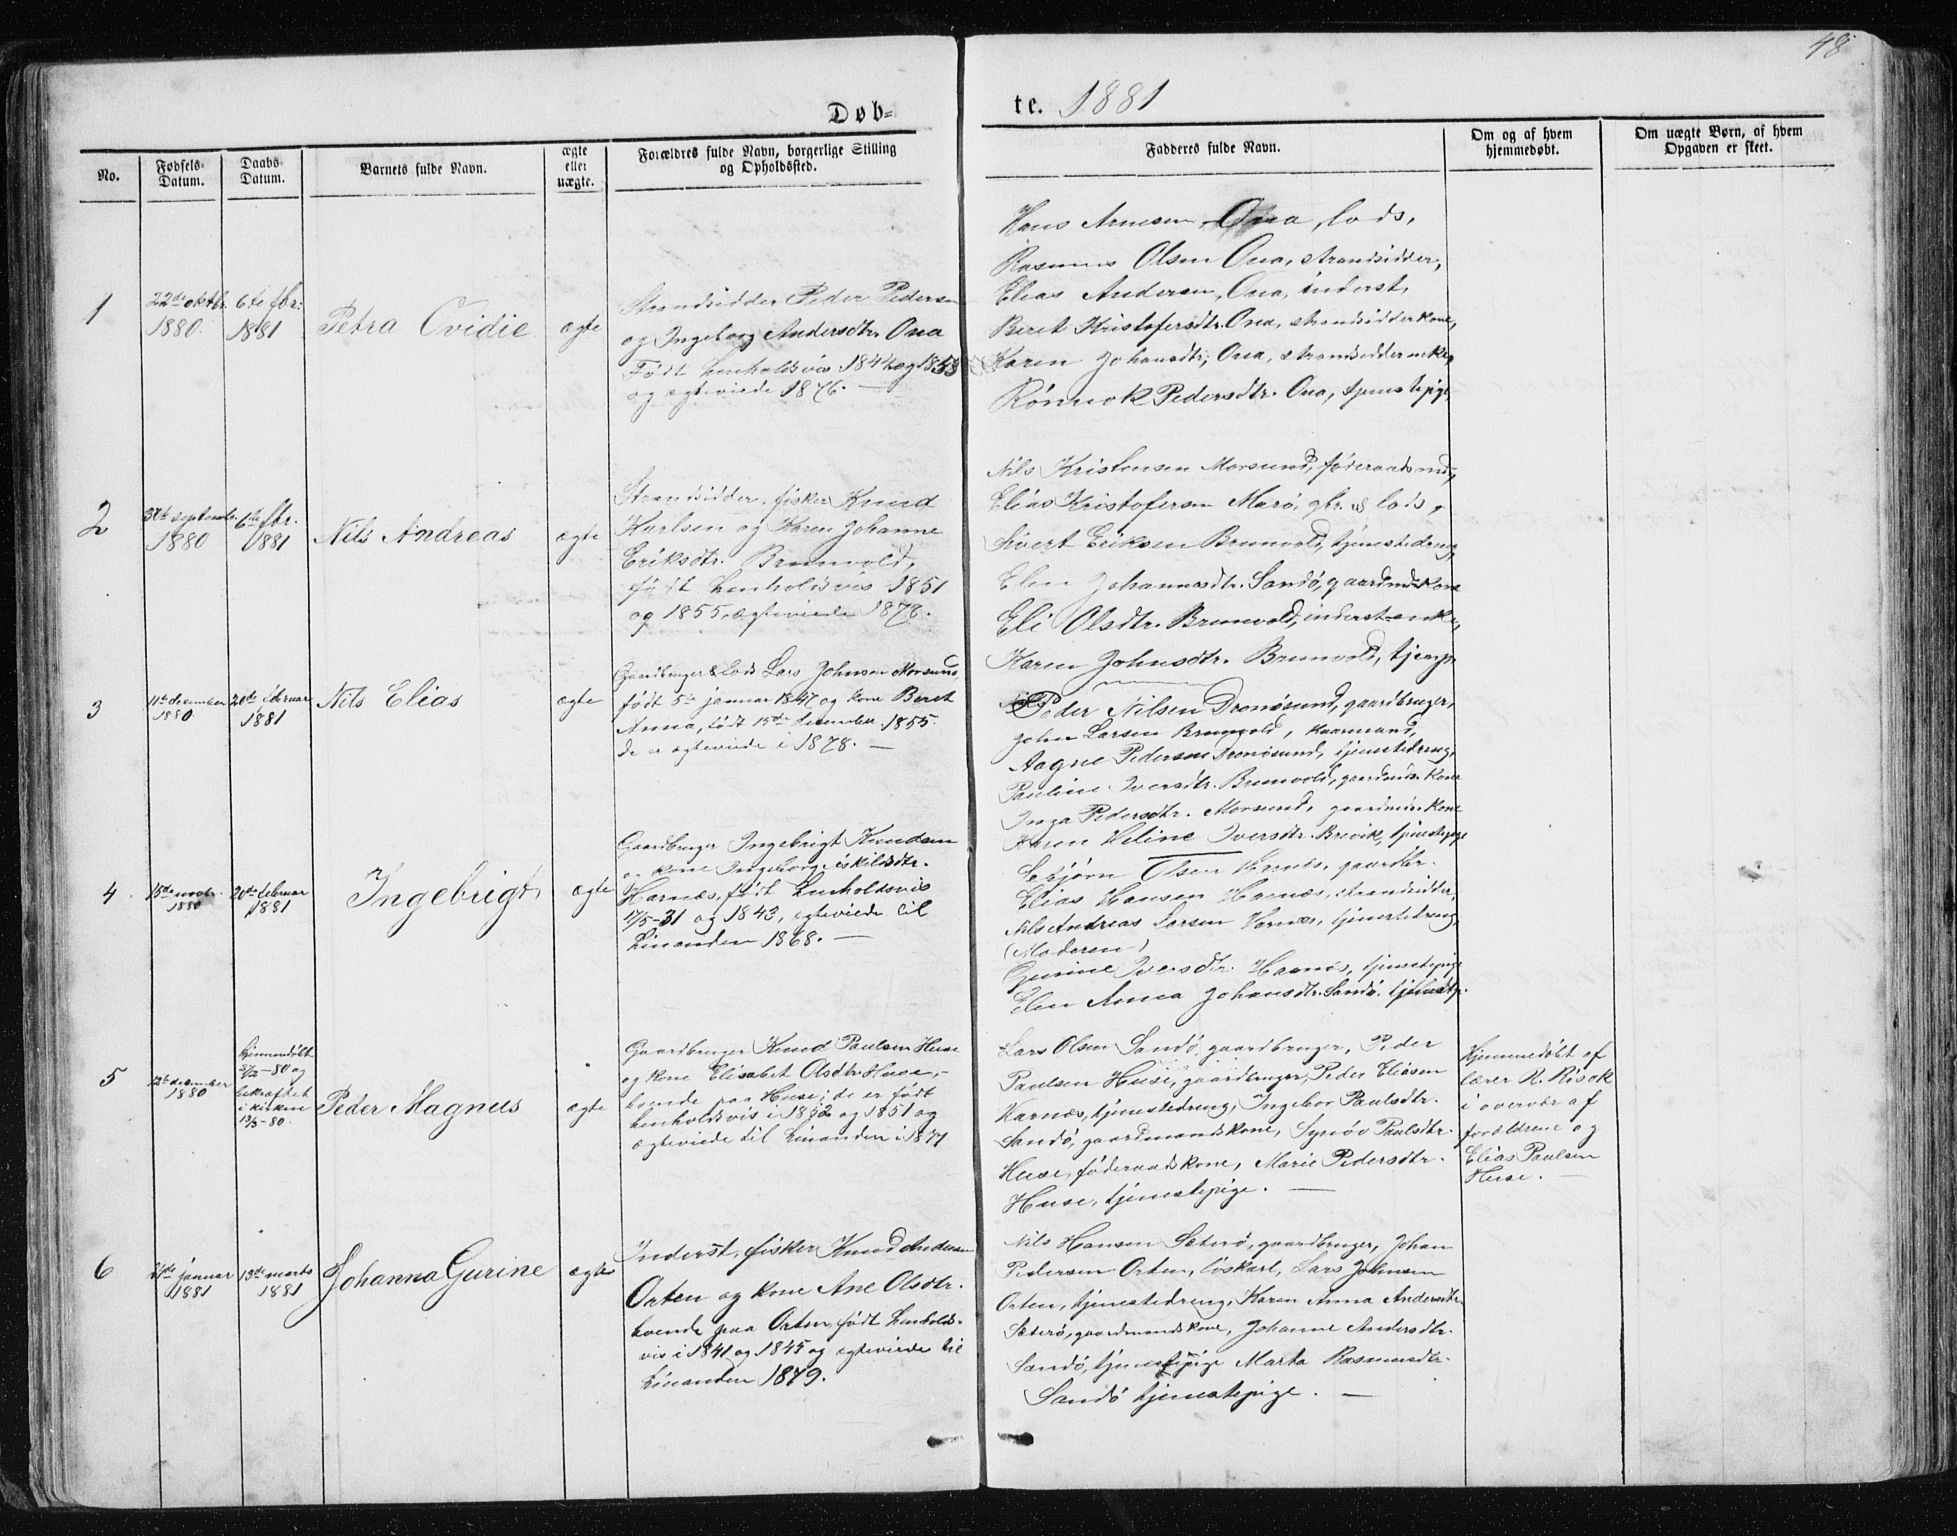 48
Døb=
te. 1881
No.
Fødsels-
Datum.
Daabs-
Datum.
Barnets fulde Navn.
ægte
eller
uægte.
Forældres fulde Navn, borgerlige Stilling
og Opholdssted.
Fadderes fulde Navn.
Om og af hvem
hjemmedøbt.
Om uægte Børn, af hvem
Opgaven er skeet.
1
22de oktbr.
1880.
6te fbr.
1881
Petra Ovidie
ægte
Strandsidder Peder Pedersen
og Ingeborg Andersdtr. Ona
Født henholdsvis 1844 og 1853
og ægteviede 1876. —
Hans Arnesen Ona, lods,
Rasmus Olsen Ona, strandsidder,
Elias Andersen, Ona, inderst,
Beret Kristofersdtr. Ona, strandsidderkone,
Karen Johansdtr, Ona, strandsidderenke,
Rönnok Pedersdtr. Ona, tjenestepige,
2
30te septembr.
1880
6te fbr.
1881
Nils Andreas
ægte
Strandsidder, fisker Knud
Karlsen og Karen Johanne
Eriksdtr. Brunvold,
født henholdsvis 1851
og 1855, ægteviede 1878.
Nils Kristensen Morsund, föderaadsmd,
Elias Kristofersen Marö, gbr. & lods,
Sivert Eriksen Brunvold, tjenestedreng,
Elen Johannesdtr. Sandö, gaardmdskone
Eli Olsdtr. Brunvold, inderst enke,
Karen Johnsdtr. Brunvold, tjenp.
3
11te desember
1880
20de februar
1881
Nils Elias
ægte
Gaardbruger & lods Lars Johnsen Morsund,
født 5te januar 1847 og kone Beret
Anna, født 15de desember 1855.
de er ægteviede i 1878. —
Peder Nilsen Dronösund, gaardbruger,
John Larsen Brunvold, kaarmand,
Aagne Pedersen Dronösund, tjenestedreng,
Pauline Iversdtr. Brunvold, gaardmds. kone
Inga Pedersdtr. Morsund, gaardmds. kone
Karen Heline Iversdtr. Brevik, tjenestepige
4
15de novbr.
1880
20de februar
1881
Ingebrigt
ægte
Gaardbruger Ingebrigt Knudsen
og kone Ingeborg Eskildsdtr.
Harnæs, født henholdsvis
17/5-31 og 1843, ægteviede til
hinanden 1868. —
Esbjörn Olsen Harnæs, gaardbr.
Elias Hansen Harnæs, strandsidder,
Nils Andreas Larsen Harnæs, tjenestedreng,
(Moderen)
Gurine Iversdtr. Harnæs, tjenestepige
Elen Anna Johansdtr. Sandö, tjenestp.
5
12te desember
1880
hjemmedöbt
27/12-80 og
bekræftet
i kirken
13/3-80.
Peder Magnus
ægte
Gaardbruger Knud Paulsen Huse
og kone Elisabet Olsdtr. Huse,-
boende paa Huse; de er født
henholdsvis i 1852 og 1851 og
ægteviede til hinanden i 1877
Lars Olsen Sandö, gaardbruger, Peder
Paulsen Huse, gaardbruger, Peder Eliasen
Harnæs, tjenestedreng, Ingebor Paulsdtr.
Sandö, gaardmandskone, Synöv Paulsdtr.
Huse, föderaadskone, Marie Pedersdtr.
Huse, tjenestepige. —
Hjemmedöbt af
lærer R. Rösok
i overvær af
forældrene og
Elias Paulsen
Huse. —
6
januar
1881
13de marts
1881
Johanna Gurine
ægte
Inderst, fisker Knud Andersen
Orten og kone Ane Olsdtr.
boende paa Orten, født henholds-
vis i 1841 og 1845 og ægteviede til
hinanden 1879.
Nils Hansen Sæterö, gaardbruger, Johan
Pedersen Orten, löskarl, Lars Johnsen
Orten, tjenestedreng, Karen Anna Andersdtr.
Sæterö, gaardmandskone, Johanne Andersdtr.
Sandö, tjenestepige Marta Rasmusdtr.
Sandö tjenestepige. —